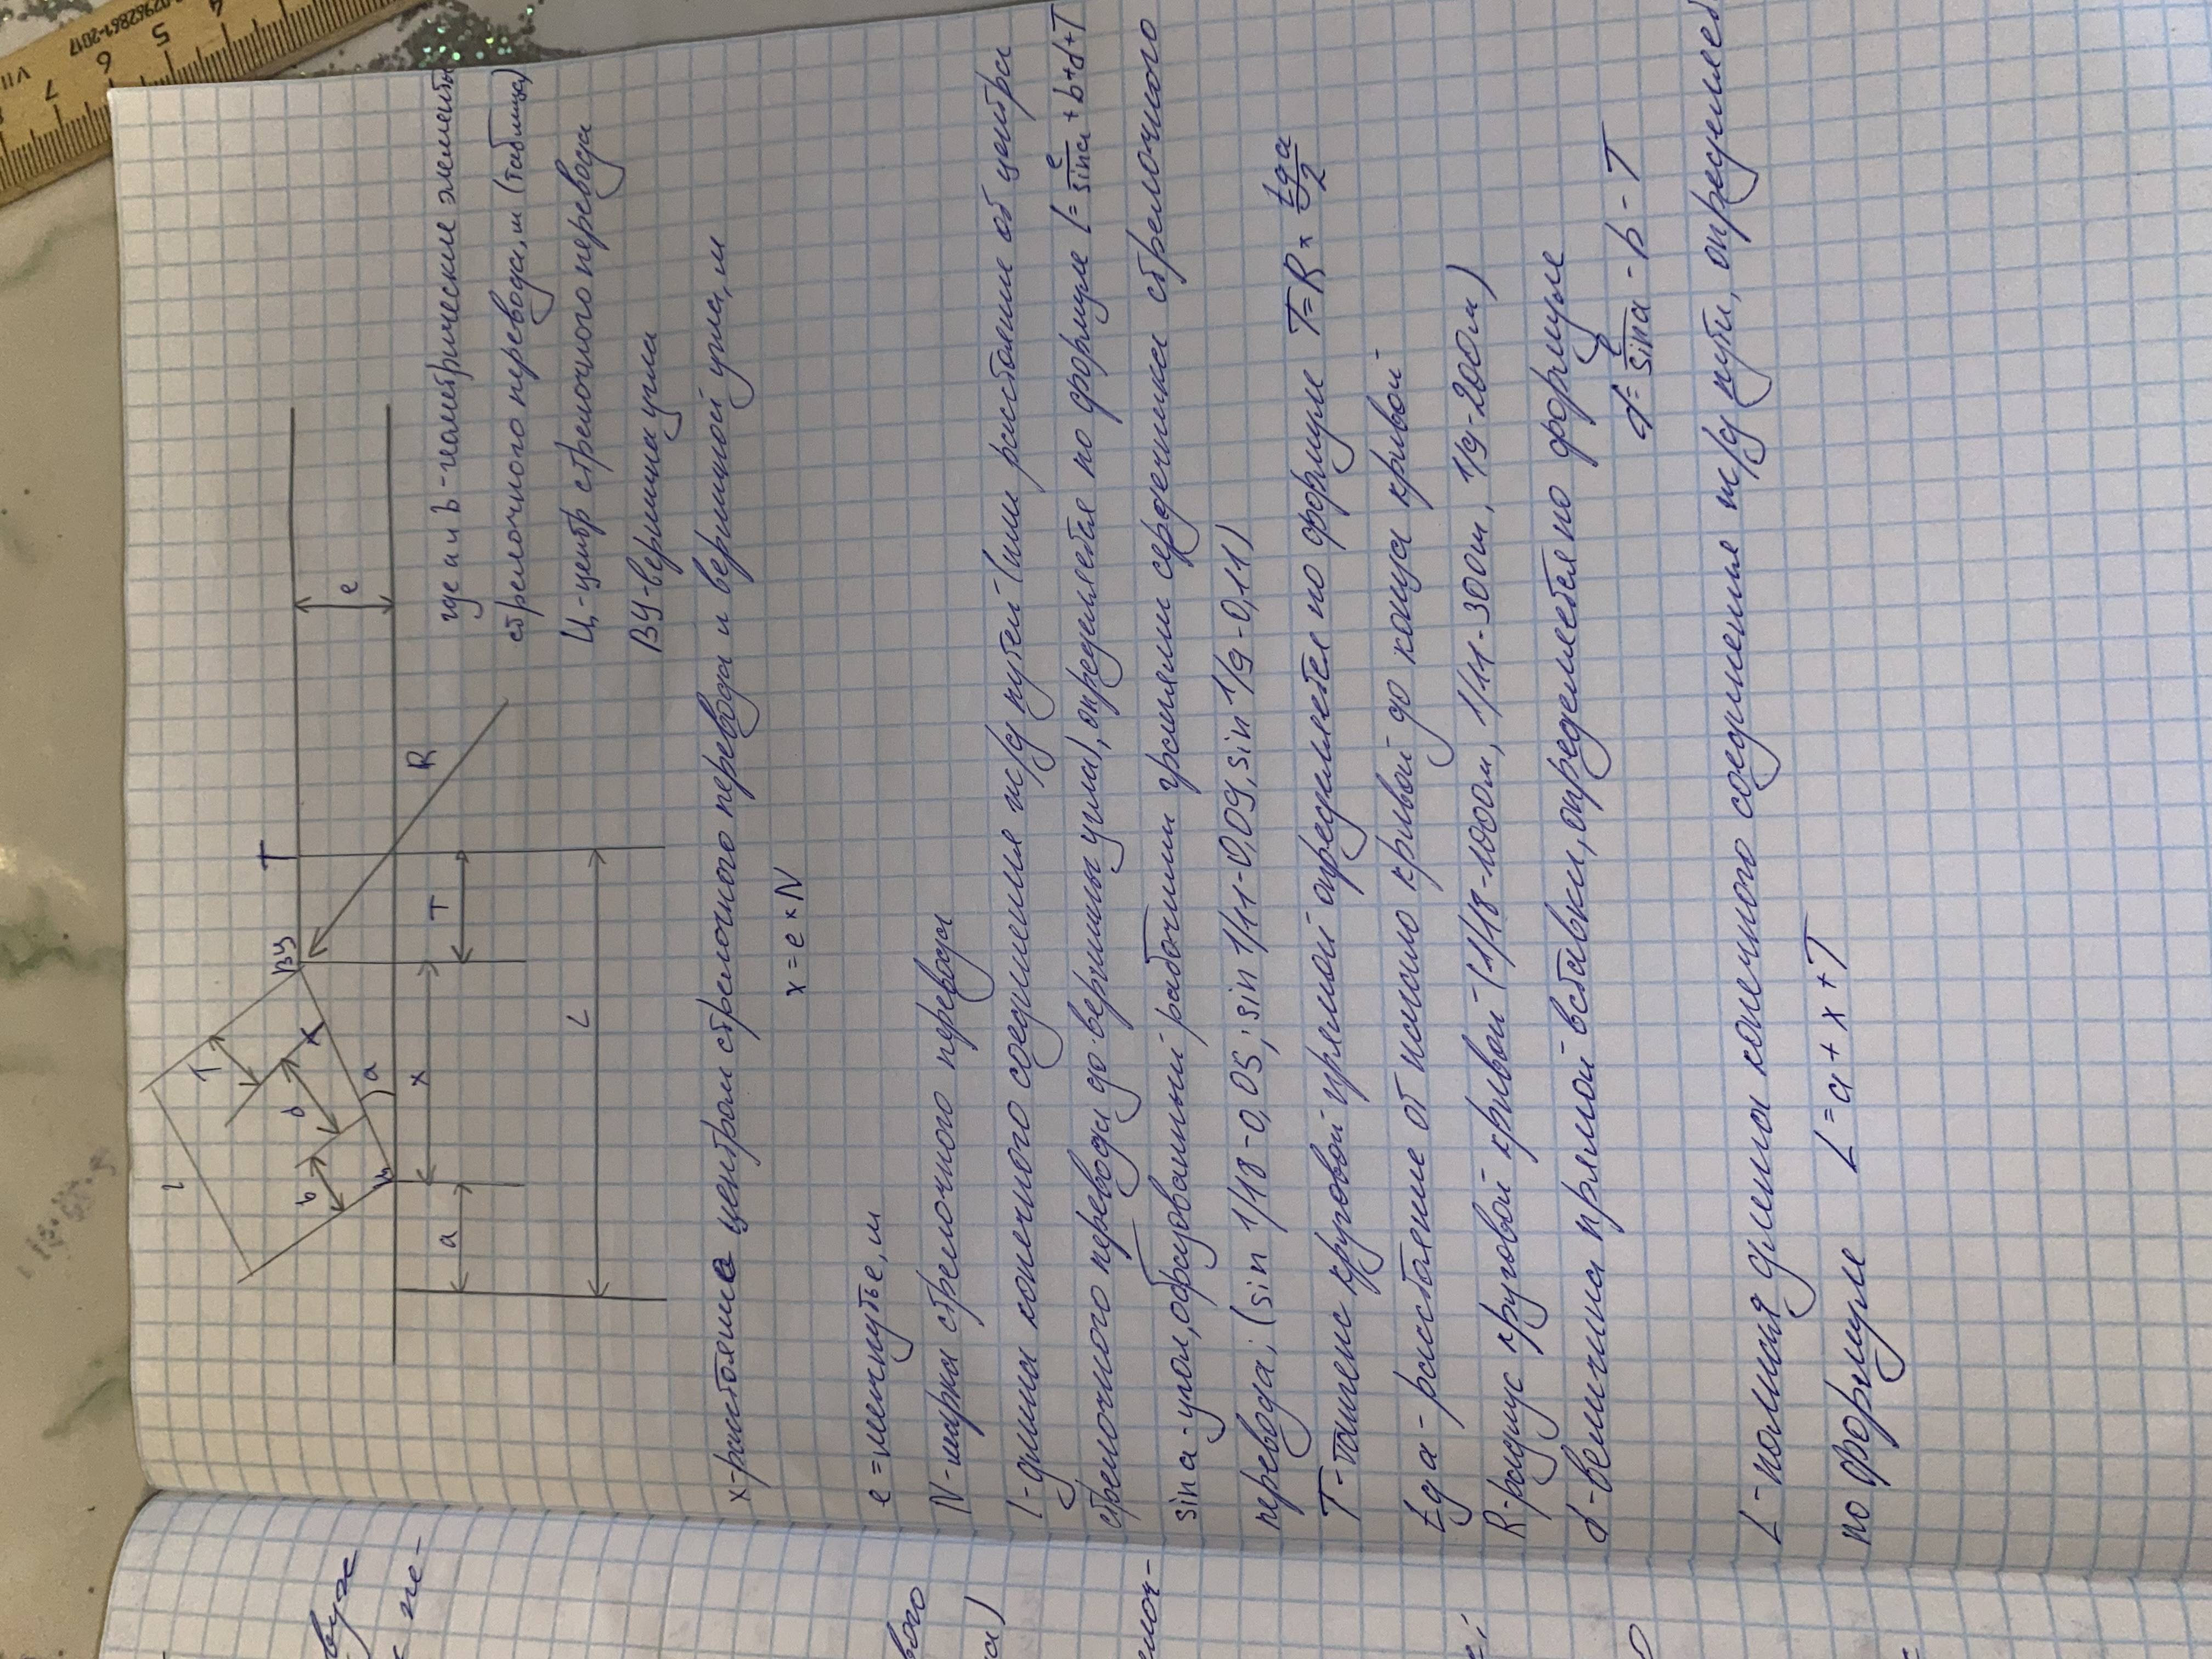 02962861-2017
VII
7 6 5 4
l
T
d
b
к
ВУ
Т
a
Ц
a
x
T
R
e
L
где a и b - геометрические элементы
стрелочного перевода, м (таблица)
Ц - центр стрелочного перевода
ВУ - вершина угла
x - расстояние центром стрелочного перевода и вершиной угла, м
x = e × N
e = междупутье, м
N - марка стрелочного перевода
l - длина конечного соединения ж/д путей (или расстояние от центра
стрелочного перевода до вершины угла), определяется по формуле l = e/sina + b+d+T
sina - угол, образованный рабочими гранями сердечника стрелочного
перевода; (sin 1/18 - 0,05; sin 1/11 - 0,09, sin 1/9 - 0,11)
T - тангенс круговой прямой определяется по формуле T = R × tga/2
tga - расстояние от начало кривой до конца кривой
R - радиус круговой кривой (1/18 - 1000м, 1/11 - 300м, 1/9 - 200м)
d - величина прямой вставки, определяется по формуле
d = e/sina - b - T
L - полная длина конечного соединения ж/д пути, определяет
по формуле L = a + x + T